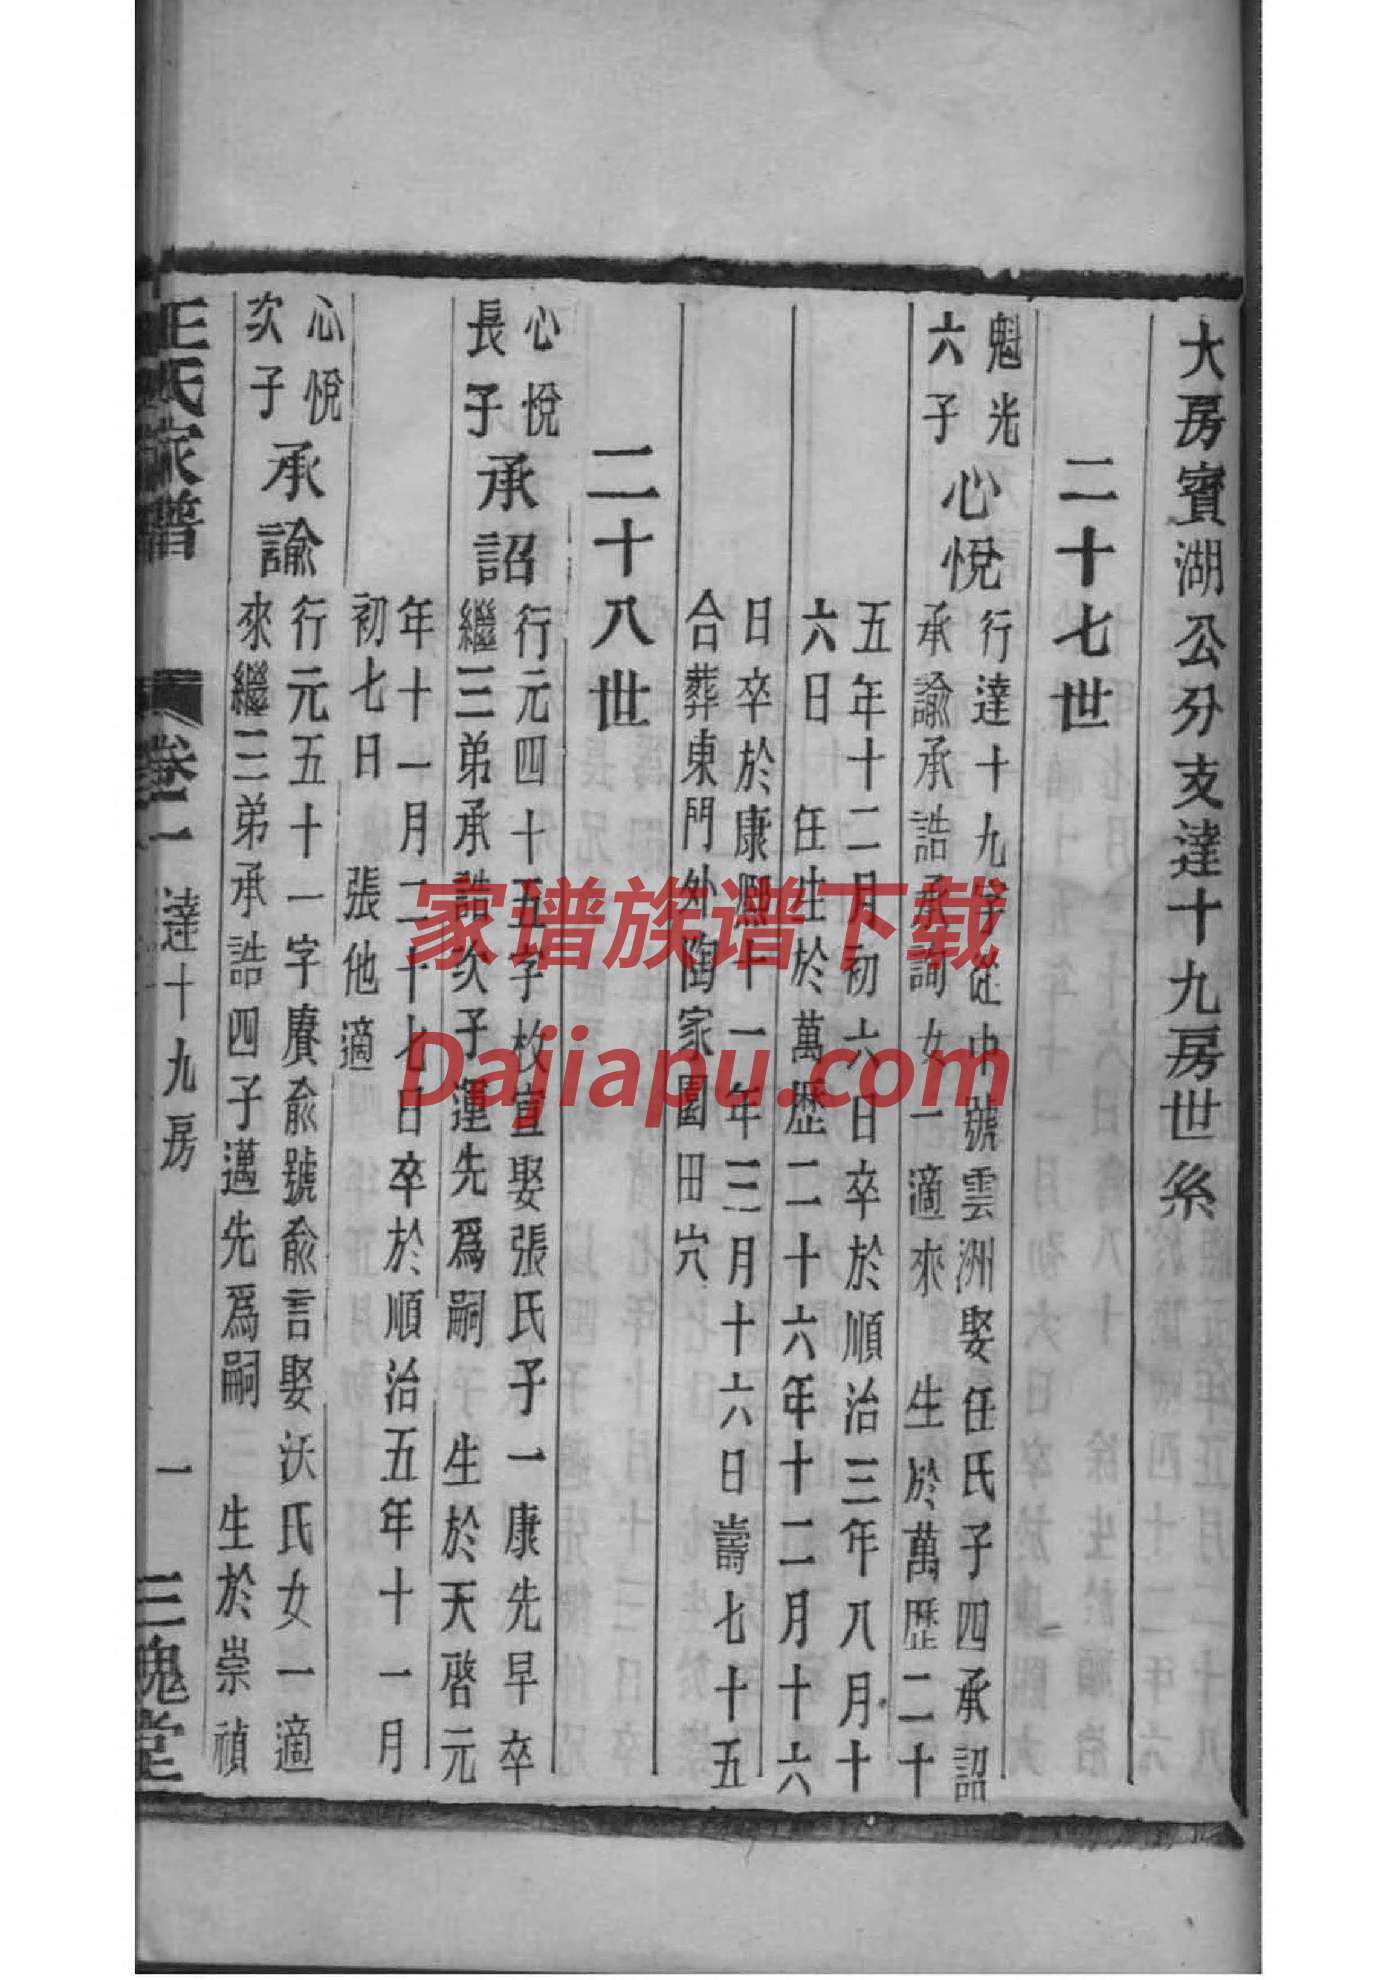 大房賓湖公分支達十九房世系
二十七世
魁光
六子
心悅
行達十九字從中號雲洲娶任氏子四承詔
承諭承誥承訶女一適來 生於萬歷二十
五年十二月初六日卒於順治三年八月十
六日 任生於萬歷二十六年十二月十六
日卒於康熙十一年三月十六日壽七十五
合葬東門外陶家園田穴
二十八世
心悅
長子
承詔
行元四十五字枚宣娶張氏子一康先早卒
繼三弟承誥次子運先爲嗣 生於天啓元
年十一月二十七日卒於順治五年十一月
初七日 張他適
心悅
次子
承諭
行元五十一字賡俞號俞言娶沃氏女一適
來繼三弟承誥四子邁先爲嗣 生於崇禎
王氏家譜 卷二 達十九房 一 三槐堂
家谱族谱下载
Dajiapu.com